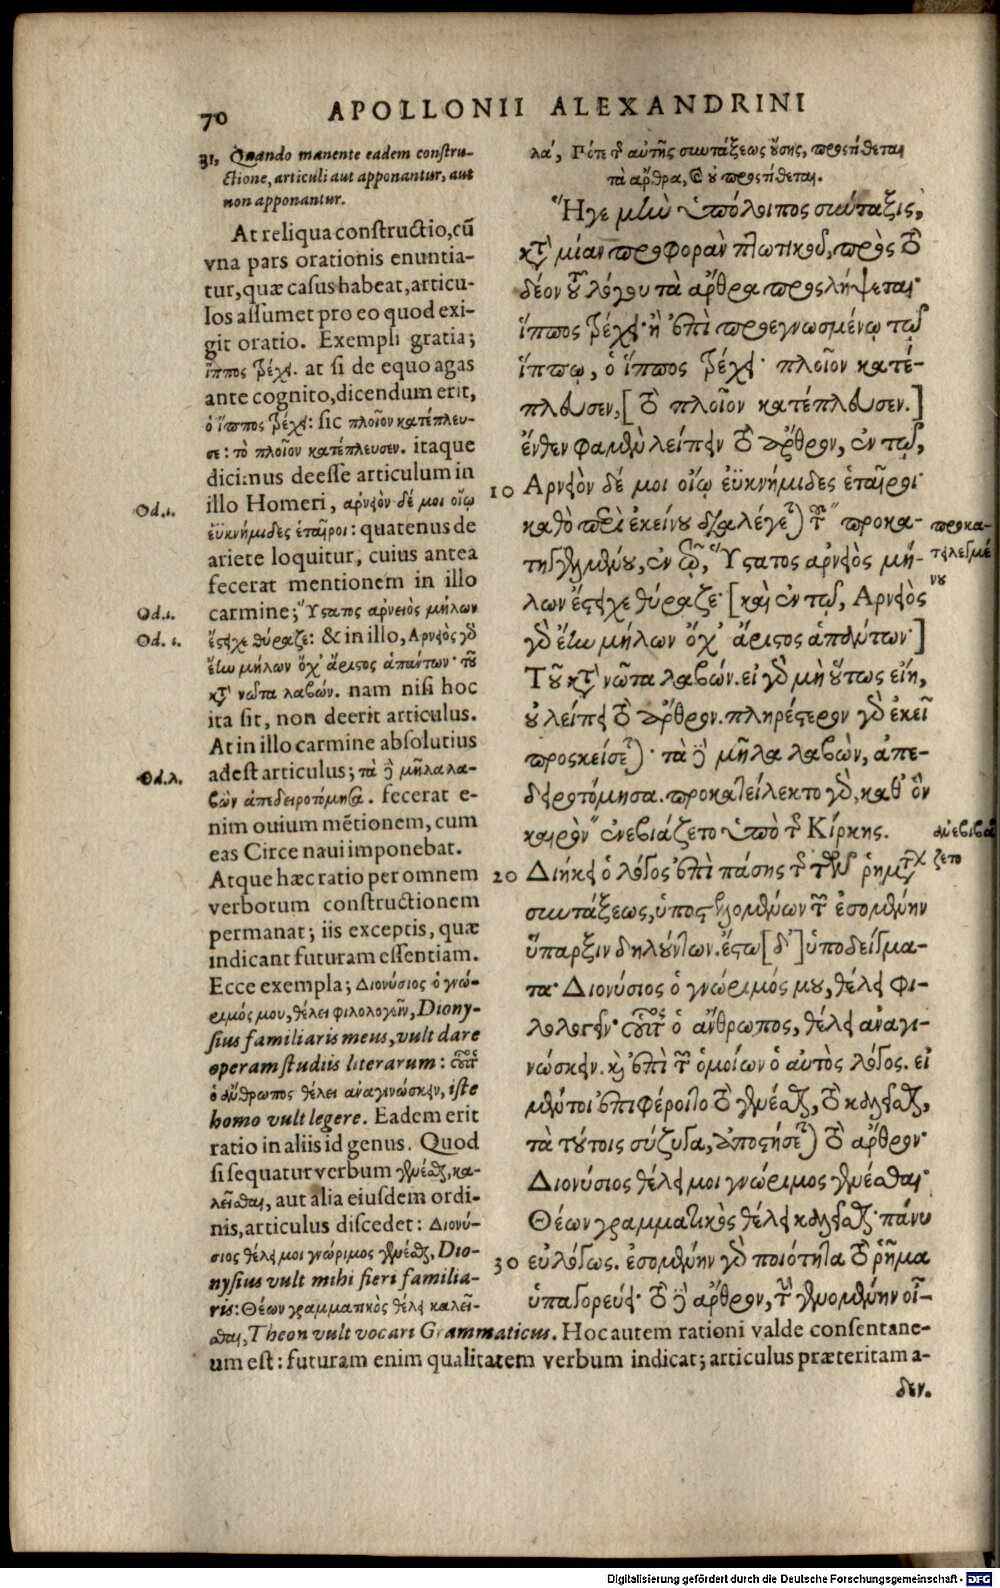 70
APOLLONII ALEXANDRINI
31, Quando manente eadem constru-
ctione, articuli aut apponantur, aut
non apponantur.
At reliqua constructio, cū
vna pars orationis enuntia-
tur, quæ casus habeat, articu-
los assumet pro eo quod exi-
git oratio. Exempli gratia;
ἵππος τρέχει. at si de equo agas
ante cognito, dicendum erit,
ὁ ἵππος τρέχει: sic πλοῖον κατέπλευ-
σε: τὸ πλοῖον κατέπλευσεν. itaque
dicimus deesse articulum in
Od.ι.
illo Homeri, ἀρνειὸν δέ μοι οἴῳ
ἐϋκνήμιδες ἑταῖροι: quatenus de
ariete loquitur, cuius antea
fecerat mentionem in illo
Od.ι.
carmine; Ὕστατος ἀρνειὸς μήλων
Od. ι.
ἔστειχε θύραζε: & in illo, Ἀρνειὸς γὸ
ἔἰω μήλων ὄχ' ἄριστος ἁπάντων· τοῦ
κτ' νῶτα λαβών. nam nisi hoc
ita sit, non deerit articulus.
At in illo carmine absolutius
Od.λ.
adest articulus; τὰ δὲ μῆλα λα-
βὼν ἀπεδειροτόμησα. fecerat e-
nim ouium mētionem, cum
eas Circe naui imponebat.
Atque hæc ratio per omnem
verborum constructionem
permanat; iis exceptis, quæ
indicant futuram essentiam.
Ecce exempla; Διονύσιος ὁ γνώ-
ριμός μου, θέλει φιλολογεῖν, Diony-
sius familiaris meus, vult dare
operam studiis literarum: οὗτος
ὁ ἄνθρωπος θέλει ἀναγινώσκειν, iste
homo vult legere. Eadem erit
ratio in aliis id genus. Quod
si sequatur verbum γενέσθαι, κα-
λεῖσθαι, aut alia eiusdem ordi-
nis, articulus discedet: Διονύ-
σιος θέλει μοι γνώριμος γενέσθαι, Dio-
nysius vult mihi fieri familia-
ris: Θέων γραμματικὸς θέλει καλεῖ-
σθαι, Theon vult vocari Grammaticus. Hoc autem rationi valde consentane-
um est: futuram enim qualitatem verbum indicat; articulus præteritam a-
λα', Πότε τῆς αὐτῆς συντάξεως οὔσης, προστίθεται
τὰ ἄρθρα, καὶ οὐ προστίθεται.
Ἥγε μὴν ὑπόλοιπος σύνταξις,
κατὰ μίαν προφορὰν πτωτικοῦ, πρὸς τὸ
δέον τοῦ λόγου τὰ ἄρθρα προσλήψεται·
ἵππος τρέχει· ἢ ἐπὶ προεγνωσμένῳ τῷ
ἵππῳ, ὁ ἵππος τρέχει· πλοῖον κατέ-
πλευσεν, [τὸ πλοῖον κατέπλευσεν.]
ἔνθεν φαμὲν λείπειν τὸ ἄρθρον, ἐν τῷ,
10 Ἀρνειὸν δέ μοι οἴῳ ἐϋκνήμιδες ἑταῖροι·
καθὸ περὶ ἐκείνου διαλέγεται τοῦ " προκα-
προκα-
τειλεγμέ
νου
τηλεγμένου, ἐν ᾧ, Ὕστατος ἀρνειὸς μή-
λων ἔστειχε θύραζε· [καὶ ἐν τῷ, Ἀρνειὸς
γὸ ἔἰω μήλων ὄχ' ἄριστος ἁπάντων·]
Τοῦ κτ' νῶτα λαβών. εἰ γὸ μὴ οὕτως εἴη,
οὐ λείπει τὸ ἄρθρον. πληρέστερον γὸ ἐκεῖ
προσκείσεται· τὰ δὲ μῆλα λαβὼν, ἀπε-
δειροτόμησα. προκατείλεκτο γὸ, καθ' ὃν
καιρὸν " ἐνεβιάζετο ὑπὸ τῆς Κίρκης.
ἐνεβιβά
ζετο
20 Διήκει ὁ λόγος ἐπὶ πάσης τῆς τῶν ῥημάτων
συντάξεως, ὑποστελλομένων τῶν ἐσομένην
ὕπαρξιν δηλούντων. ἔστω [δ'] ὑποδείγμα-
τα· Διονύσιος ὁ γνώριμός μου, θέλει φι-
λολογεῖν· οὗτος ὁ ἄνθρωπος, θέλει ἀναγι-
νώσκειν. καὶ ἐπὶ τῶν ὁμοίων ὁ αὐτὸς λόγος. εἰ
μέντοι ἐπιφέροιτο τὸ γενέσθαι, τὸ καλεῖσθαι,
τὰ τούτοις σύζυγα, ἀποστήσεται τὸ ἄρθρον·
Διονύσιος θέλει μοι γνώριμος γενέσθαι·
Θέων γραμματικὸς θέλει καλεῖσθαι· πάνυ
30 εὐλόγως. ἐσομένην γὸ ποιότητα τὸ ῥῆμα
ὑπαγορεύει· τὸ δὲ ἄρθρον, τὴν γενομένην οἶ-
δεν.
Digitalisierung gefördert durch die Deutsche Forschungsgemeinschaft - DFG